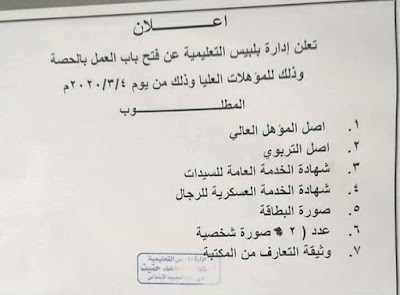 اعـــلان
تعلن إدارة بلبيس التعليمية عن فتح باب العمل بالحصة
وذلك للمؤهلات العليا وذلك من يوم ٢٠٢٠/٣/٤م
المطلـــوب
١. اصل المؤهل العالي
٢. اصل التربوي
٣. شهادة الخدمة العامة للسيدات
٤. شهادة الخدمة العسكرية للرجال
٥. صورة البطاقة
٦. عدد ( ٢ صورة شخصية
٧. وثيقة التعارف من المكتبة
إدارة بلبيس التعليمية